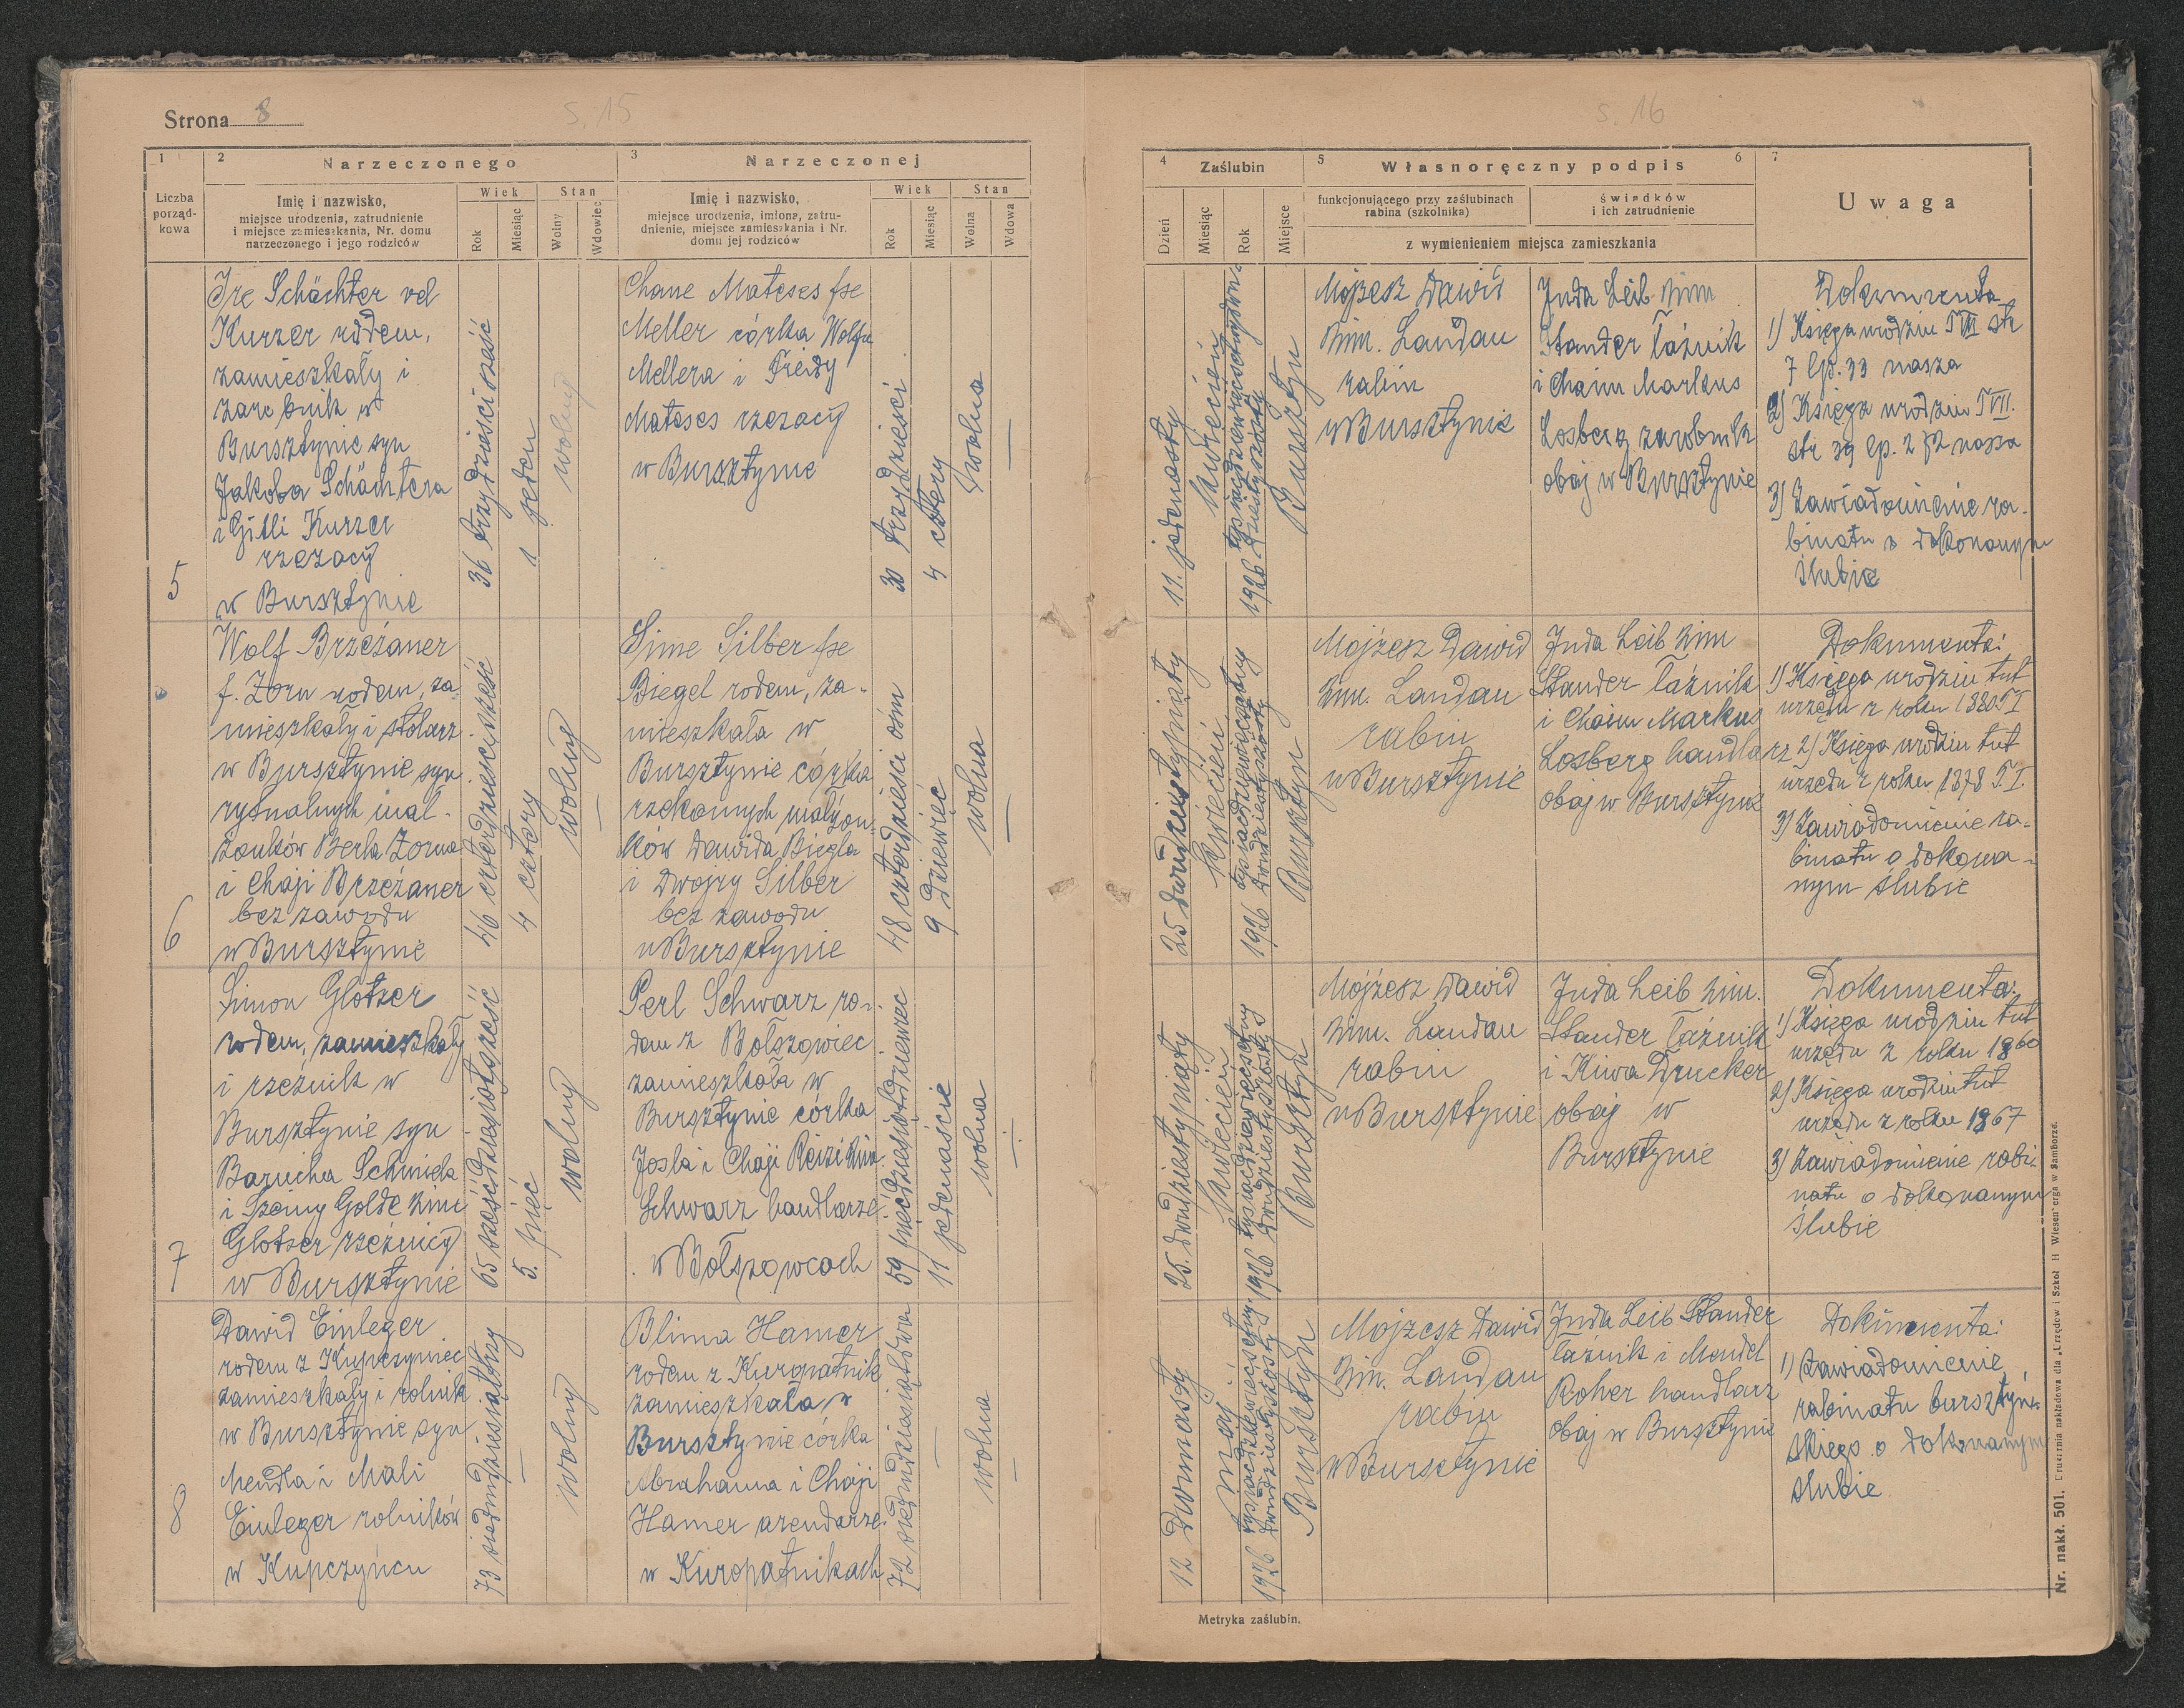 Strona 8
s. 15
1
2
Narzeczonego
3
Narzeczonej
Liczba
porząd-
kowa
Imię i nazwisko,
miejsce urodzenia, zatrudnienie
i miejsce zamieszkania, Nr. domu
narzeczonego i jego rodziców
Wiek
Stan
Rok
Miesiąc
Wolny
Wdowiec
Imię i nazwisko,
miejsce urodzenia, imiona, zatru-
dnienie, miejsce zamieszkania i Nr.
domu jej rodziców
Wiek
Stan
Rok
Miesiąc
Wolna
Wdowa
5
Ire Schächter vel
Kurzer rodem,
zamieszkały i
zarobnik w
Bursztynie syn
Jakóba Schächtera
i Gitli Kurzer
rzezacy
w Bursztynie
36 trzydzieści sześć
1 jeden
wolny
Chane Mateses fse
Meller córka Wolfa
Mellera i Freidy
Mateses rzezacy
w Bursztynie
30 trzydzieści
4 cztery
wolna
—
6
Wolf Brzeżaner
f. Zorn rodem, za
mieszkały i stolarz
w Bursztynie syn
rytualnych mał-
żonków Berla Zorna
i Chaji Brzeżaner
bez zawodu
w Bursztynie
46 czterdzieści sześć
4 cztery
wolny
—
Sime Silber fse
Biegel rodem, za-
mieszkała w
Bursztynie córka
rzekomych małżon-
ków Dawida Biegla
i Dwojry Silber
bez zawodu
w Bursztynie
48 czterdzieści ośm
9 dziewięć
wolna
—
7
Simon Glotzer
rodem, zamieszkały
i rzeźnik w
Bursztynie syn
Barucha Schmiela
i Sceiny Golde zim
Glotzer rzeźnicy
w Bursztynie
65 sześćdziesiąt sześć
5. pięć
wolny
Perl Schwarz ro-
dem z Bołszowiec
zamieszkała w
Bursztynie córka
Josla i Chaji Reizi zim
Schwarz handlarze
w Bołszowcach
59 pięćdziesiąt dziewięć
11 jedenaście
wolna
—
8
Dawid Einleger
rodem z Kupczyniec
zamieszkały i rolnik
w Bursztynie syn
Mendla i Mali
Einleger rolników
w Kupczyńcu
73 siedmdziesiąt trzy
—
wolny
Blima Hamer
rodem z Kuropatnik
zamieszkała w
Bursztynie córka
Abrahama i Chaji
Hamer arendarze
w Kuropatnikach
72 siedmdziesiąt dwa
—
wolna
—
s. 16
4
Zaślubin
5
Własnoręczny podpis
6
7
Dzień
Miesiąc
Rok
Miejsce
funkcjonującego przy zaślubinach
rabina (szkolnika)
świadków
i ich zatrudnienie
z wymienieniem miejsca zamieszkania
Uwaga
11. jedenasty
kwiecień
1926 tysiącdziewięćsetdwu-
dziesty szósty
Bursztyn
Mojżesz Dawid
zim. Landau
rabin
w Bursztynie
Juda Leib zim
Stander łaźnik
i Chaim Markus
Losberg zarobnik
obaj w Bursztynie
Dokumenta
1) Księga urodzin T VIII str
7 lp. 33 nasza
2) Księga urodzin T VII.
str 39 lp. 272 nasza
3) Zawiadomienie ra-
binatu o dokonanym
ślubie
25 dwudziestypiąty
kwiecień
1926 tysiącdziewięćsetny
dwudziestyszósty
Bursztyn
Mojżesz Dawid
zim. Landau
rabin
w Bursztynie
Juda Leib zim
Stander łaźnik
i Chaim Markus
Losberg handlarz
obaj w Bursztynie
Dokumenta:
1) Księga urodzin tut
urzędu z roku 1880 T I
2) Księga urodzin tut
urzędu z roku 1878 T. I.
3) Zawiadomienie ra-
binatu o dokona-
nym ślubie
25. dwudziestypiąty
kwiecień
1926 tysiącdziewięćsetny
dwudziestyszósty
Bursztyn
Mojżesz Dawid
zim. Landau
rabin
w Bursztynie
Juda Leib zim.
Stander łaźnik
i Kiwa Drucker
obaj w
Bursztynie
Dokumenta:
1) Księga urodzin tut
urzędu z roku 1860
2) Księga urodzin tut
urzędu z roku 1867
3) Zawiadomienie rabi-
natu o dokonanym
ślubie
12 dwunasty
maj
1926 tysiącdziewięćsetny
dwudziestyszósty
Bursztyn
Mojżesz Dawid
zim. Landau
rabin
w Bursztynie
Juda Leib Stander
łaźnik i Mendel
Roher handlarz
obaj w Bursztynie
Dokumenta:
1) Zawiadomienie
rabinatu bursztyń-
skiego o dokonanym
ślubie
Metryka zaślubin.
Nr. nakł. 501. Drukarnia nakładowa dla „Urzędów i Szkół H Wiesenberga w Samborze.